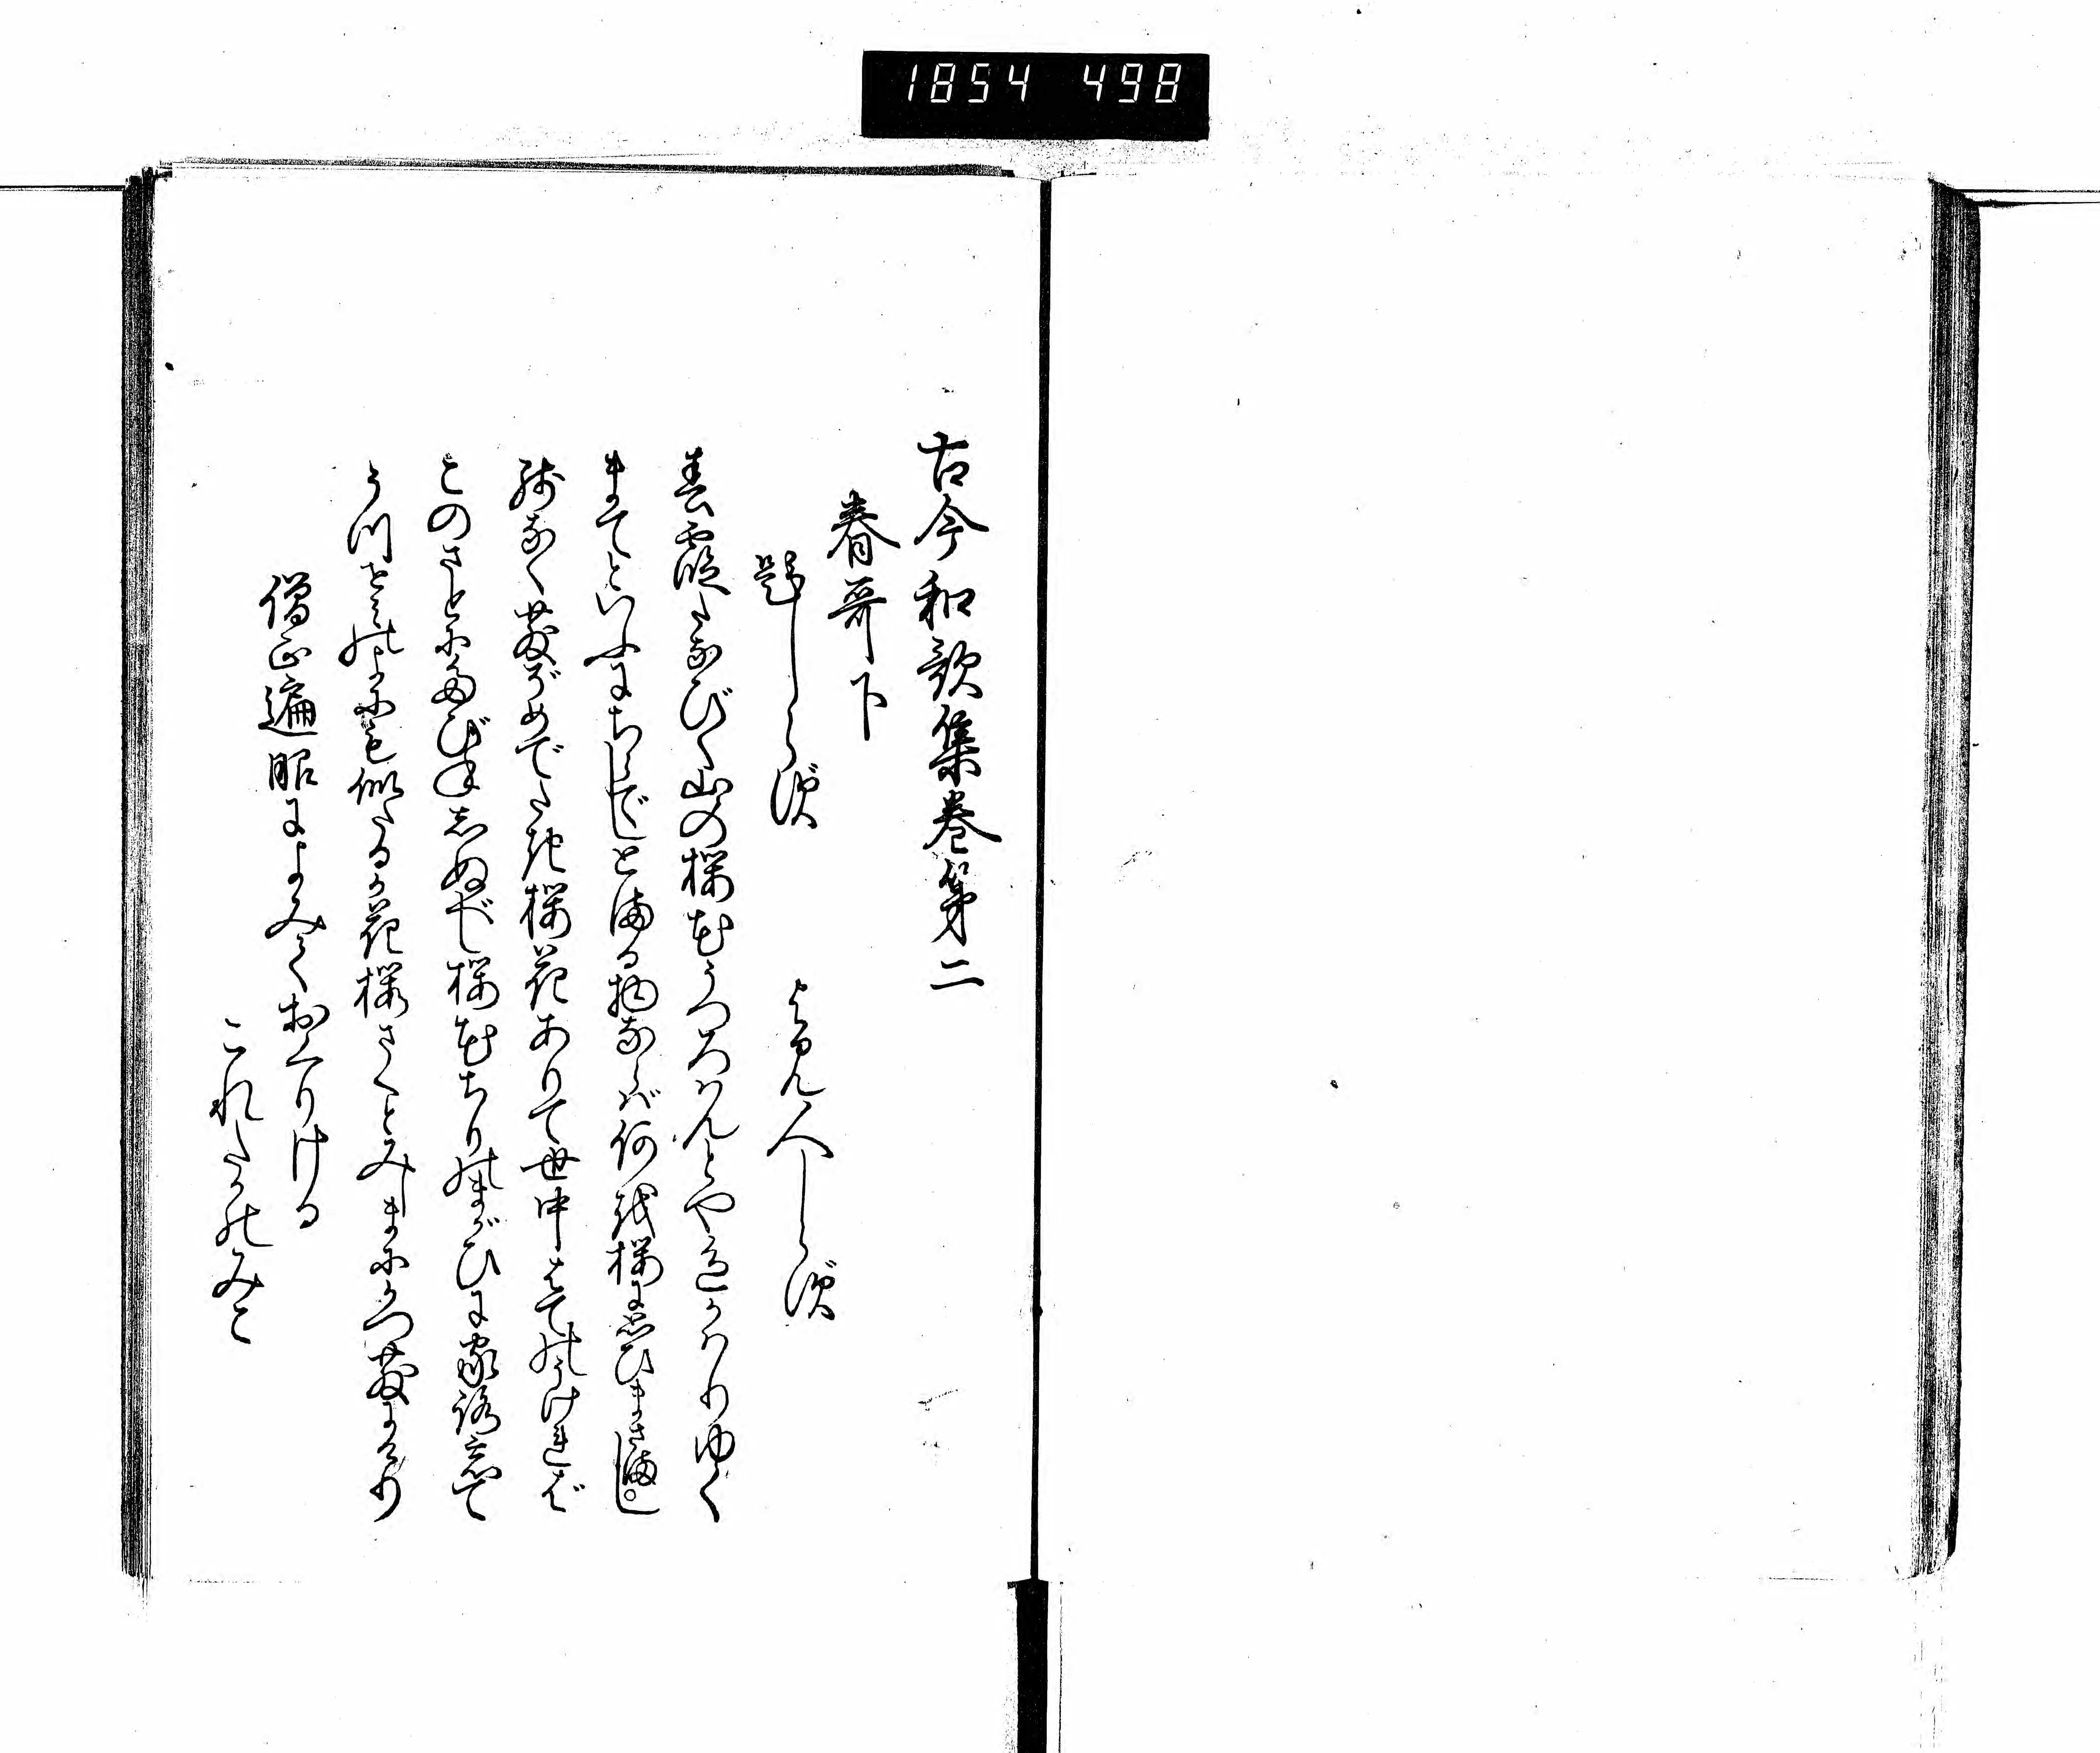 1854 498
古今和歌集巻第二
春哥下
題しらず
よみ人しらず
春霞たなびく山の桜花うつろはんとや色かはりゆく
まてといふにちらでしとまる物ならば何を桜に思ひまさまし
残なく散ぞめでたき桜花ありて世中はてのうければ
このさとにたびねしぬべし桜花ちりのまがひに家路忘て
うつせみの世にも似たるか花桜さくとみしまにかつ散にけり
僧正遍昭によみておくりける
これたかのみこ